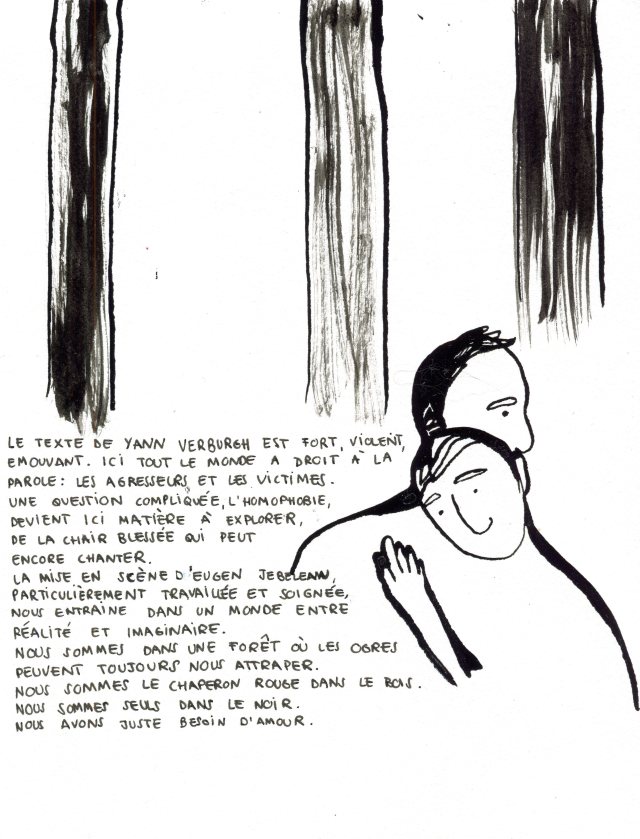 LE TEXTE DE YANN VERBURGH EST FORT, VIOLENT,
EMOUVANT. ICI TOUT LE MONDE A DROIT À LA
PAROLE : LES AGRESSEURS ET LES VICTIMES.
UNE QUESTION COMPLIQUÉE, L'HOMOPHOBIE,
DEVIENT ICI MATIÈRE À EXPLORER,
DE LA CHAIR BLESSÉE QUI PEUT
ENCORE CHANTER.
LA MISE EN SCÈNE D'EUGEN JEBELEANU,
PARTICULIÈREMENT TRAVAILLÉE ET SOIGNÉE,
NOUS ENTRAINE DANS UN MONDE ENTRE
RÉALITÉ ET IMAGINAIRE.
NOUS SOMMES DANS UNE FORÊT OÙ LES OGRES
PEUVENT TOUJOURS NOUS ATTRAPER.
NOUS SOMMES LE CHAPERON ROUGE DANS LE BOIS.
NOUS SOMMES SEULS DANS LE NOIR.
NOUS AVONS JUSTE BESOIN D'AMOUR.